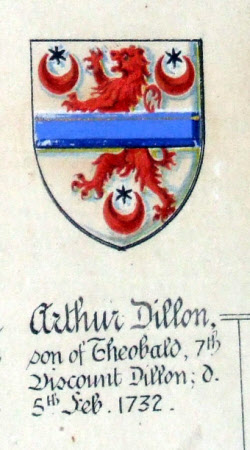 Arthur Dillon,
son of Theobald, 7th
Viscount Dillon; d.
5th Feb. 1732.